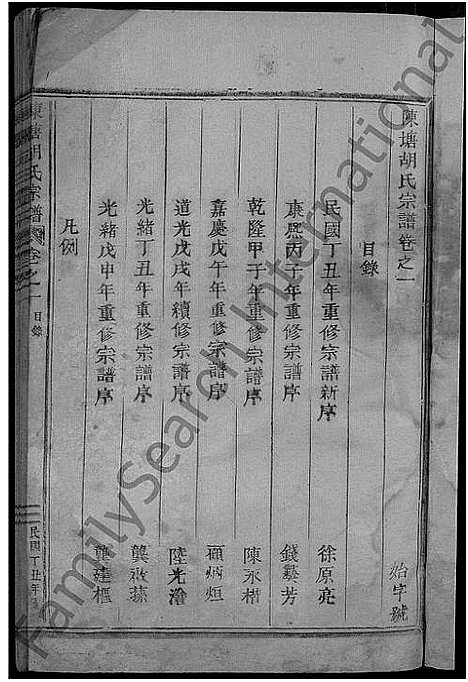 陳塘胡氏宗譜卷之一
始字號
目錄
民國丁丑年重修宗譜新序 徐原亮
康熙丙子年重修宗譜序 錢藜芳
乾隆甲子年重修宗譜序 陳永楷
嘉慶戊午年重修宗譜序 顧炳烜
道光戊戌年續修宗譜序 陸光澮
光緒丁丑年重修宗譜序 龔啟蓀
光緒戊申年重修宗譜序 龔建樞
凡例
陳塘胡氏宗譜
卷之一
目錄
民國丁丑年
FamilySearch International